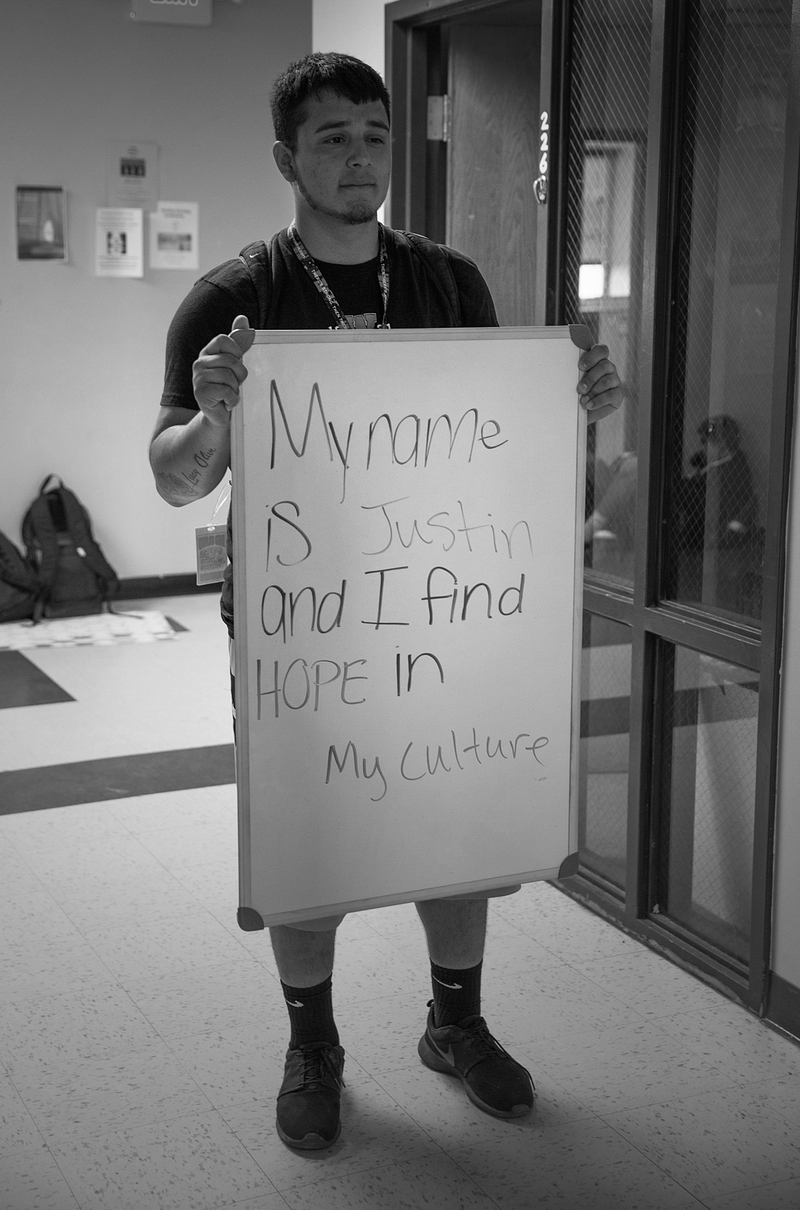 226
My name
is Justin
and I find
HOPE in
My culture